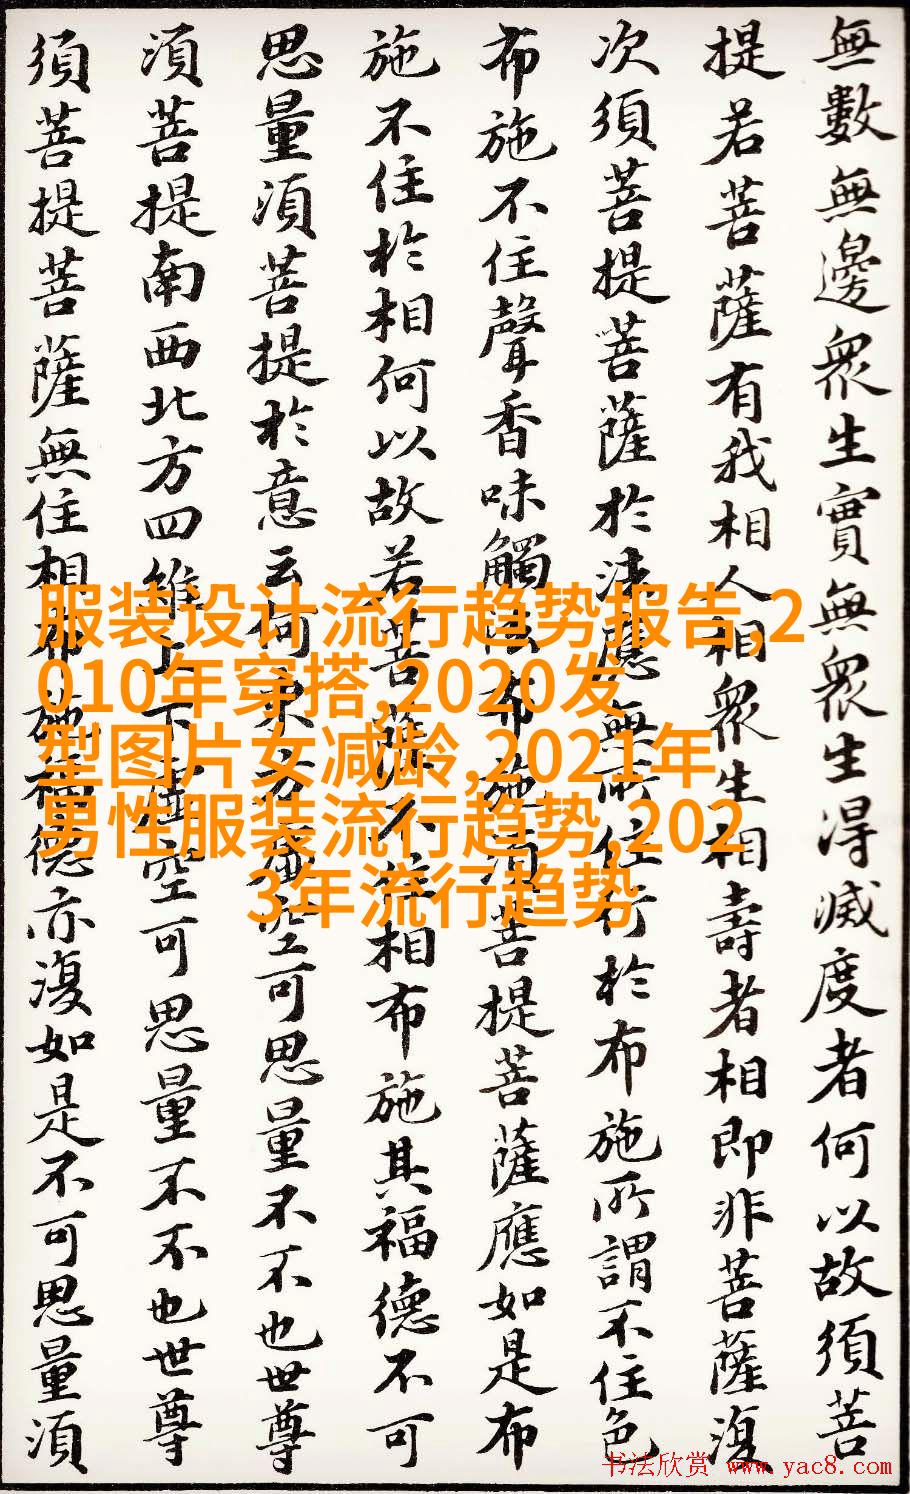 無數無邊眾生實無眾生得滅度者何以故須菩
提若菩薩有我相人相眾生相壽者相即非菩薩復
次須菩提菩薩於法應無所住行於布施所謂不住色
布施不住聲香味觸法布施須菩提菩薩應如是布
施不住於相何以故若菩薩不住相布施其福德不可
思量須菩提於意云何東方虛空可思量不不也世尊
須菩提南西北方四維上下虛空可思量不不也世尊
須菩提菩薩無住相布施福德亦復如是不可思量須
服装设计流行趋势报告,2
010年穿搭,2020发
型图片女减龄,2021年
男性服装流行趋势,202
3年流行趋势
书法欣赏 www.yac8.com